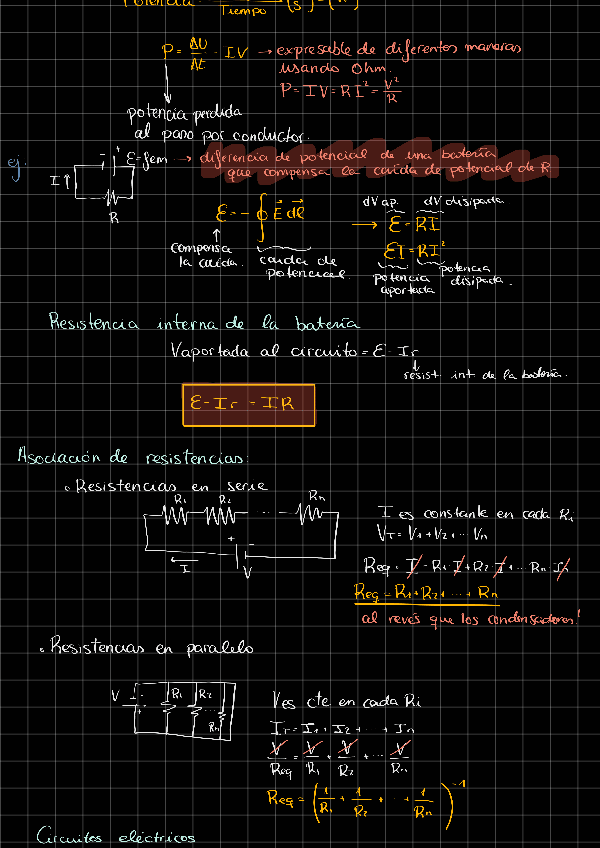 Potencia
Tiempo (s)
P = ΔU/Δt = IV → expresable de diferentes maneras
usando Ohm.
P = IV = RI² = V²/R
potencia perdida
al paso por conductor.
ej. - + ε=fem → diferencia de potencial de una batería
que compensa la caída de potencial de R
I ↑
R
ε = - ∮ E⃗ dl⃗
compensa
la caída.
caída de
potencial.
dV ap. dV disipada
→ ε = RI
εI = RI²
potencia
aportada
potencia
disipada.
Resistencia interna de la batería
Vaportada al circuito = ε - Ir
resist int de la batería.
ε - Ir = IR
Asociación de resistencias:
◦ Resistencias en serie
R₁ R₂ ... Rn
I
+ -
V
I es constante en cada Ri
VT = V₁ + V₂ + ... Vn
Req · I = R₁ · I + R₂ · I + ... Rn · In
Req = R₁ + R₂ + ... + Rn
al revés que los condensadores!
◦ Resistencias en paralelo
V - + R₁ R₂ ... Rn
V es cte en cada Ri
IT = I₁ + I₂ + ... + In
V/Req = V/R₁ + V/R₂ + ... V/Rn
Req = (1/R₁ + 1/R₂ + ... + 1/Rn)⁻¹
Circuitos eléctricos